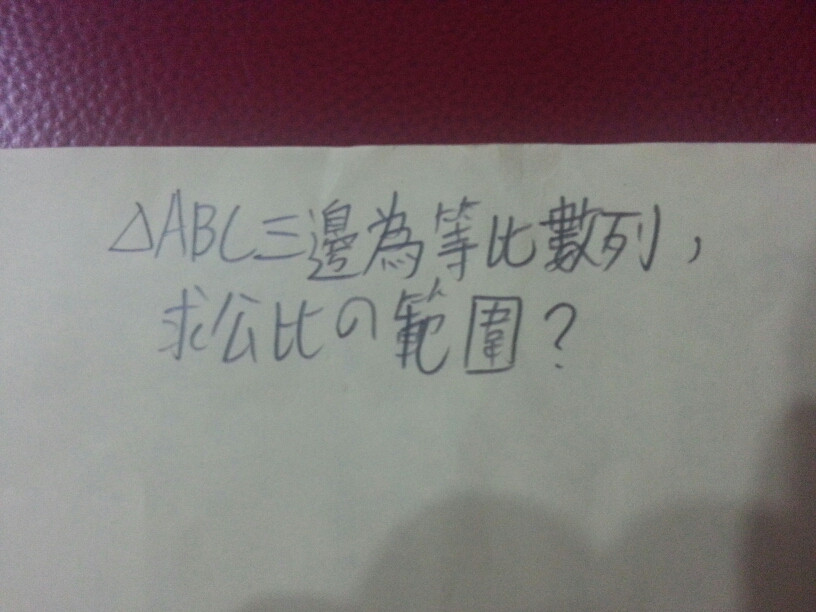 △ABC三邊為等比數列，
求公比の範圍？